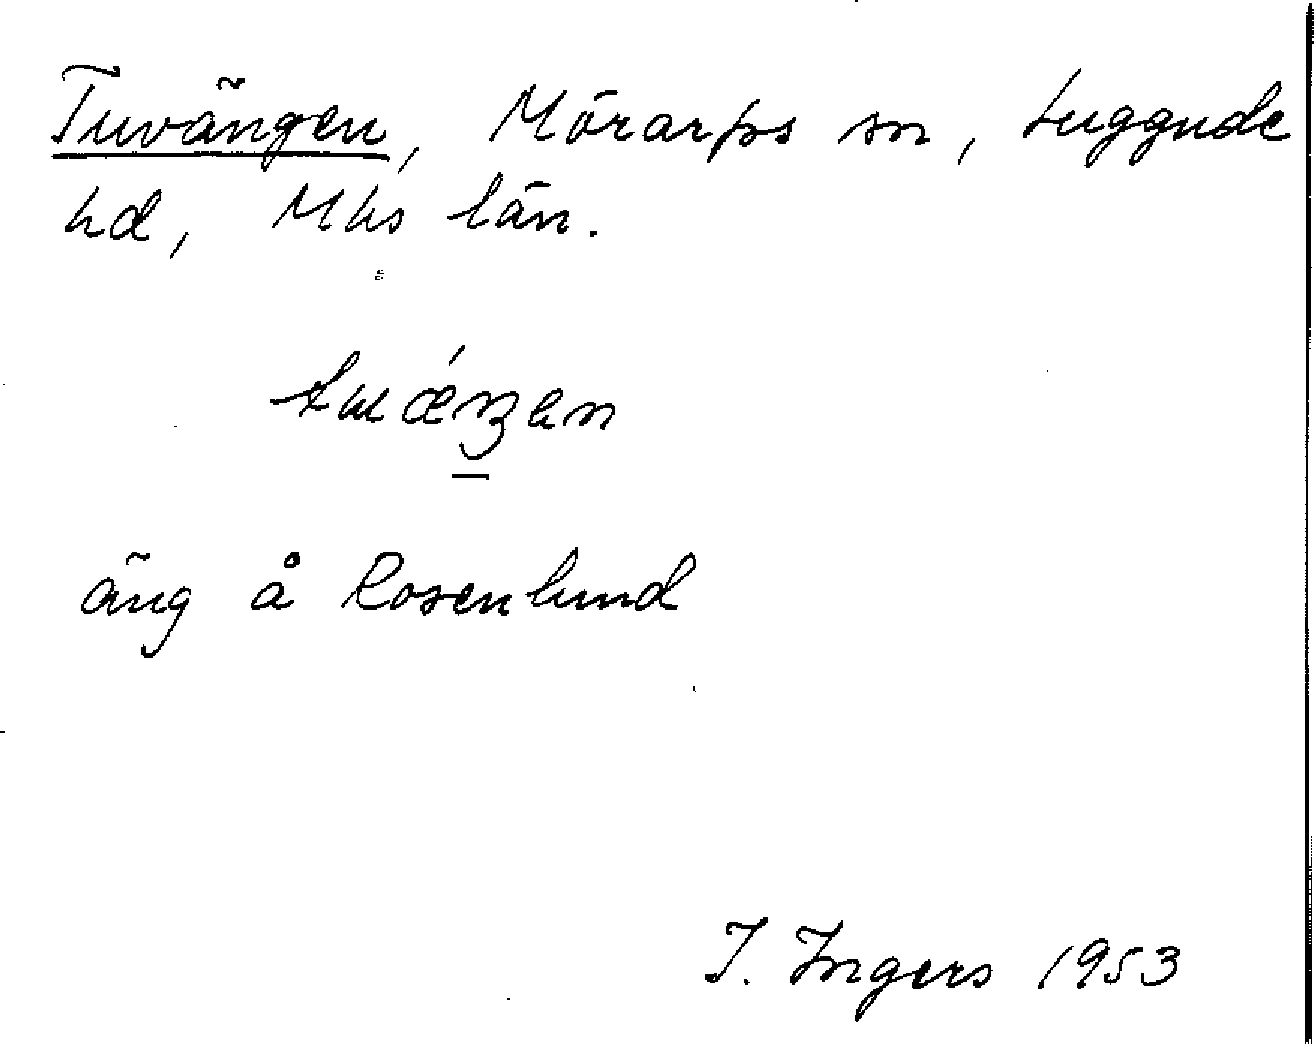 Tuvängen, Mörarps sn, Luggude
hd, Mhs län.
äng å Rosenlund
I. Ingers 1953